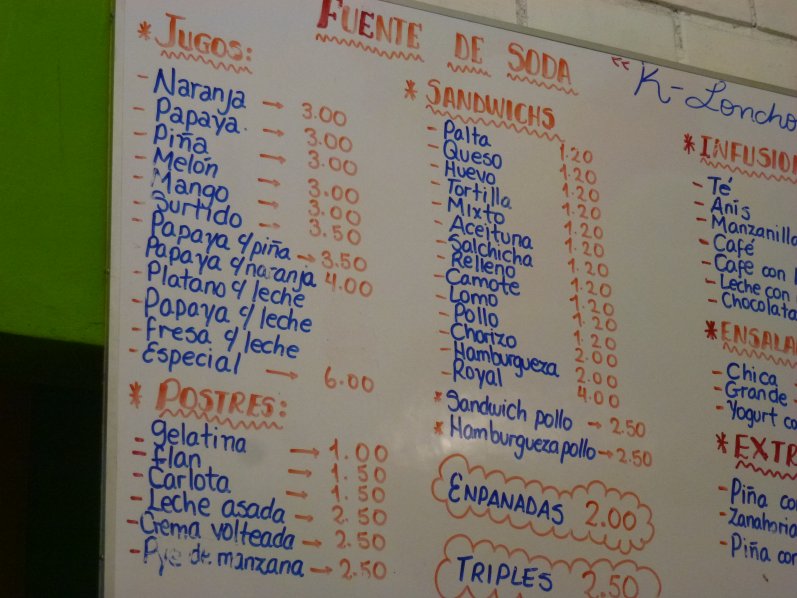 FUENTE DE SODA
"K-Loncho
* JUGOS:
- Naranja → 3.00
- Papaya. → 3.00
- Piña → 3.00
- Melón → 3.00
- Mango → 3.00
- Surtido → 3.50
- Papaya c/piña → 3.50
- Papaya c/naranja 4.00
- Platano c/ leche
- Papaya c/ leche
- Fresa c/ leche
- Especial → 6.00
* POSTRES:
- gelatina → 1.00
- flan → 1.50
- Carlota → 1.50
- Leche asada → 2.50
- Crema volteada → 2.50
- Pye de manzana → 2.50
* SANDWICHS
- Palta 1.20
- Queso 1.20
- Huevo 1.20
- Tortilla 1.20
- Mixto 1.20
- Aceituna 1.20
- Salchicha 1.20
- Relleno 1.20
- Camote 1.20
- Lomo 1.20
- Pollo 1.20
- Chorizo 2.00
- Hamburgueza 2.00
- Royal 4.00
* Sandwich pollo → 2.50
* Hamburgueza pollo → 2.50
ENPANADAS 2.00
TRIPLES 2.50
* INFUSIO
- Té
- Anís
- Manzanilla
- Café
- Cafe con
- Leche con
- Chocolata
* ENSALA
- Chica
- Grande
- Yogurt co
* EXTR
- Piña co
- Zanahoria
- Piña con